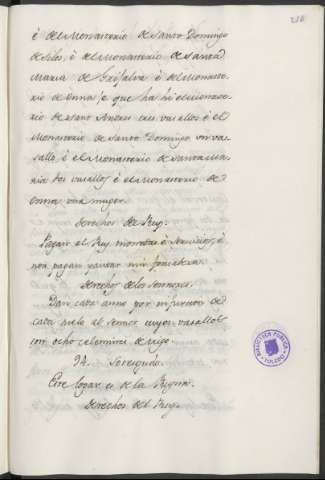 210
é del Monasterio de Santo Domingo
de Silos, é del Monasterio de Santa
Maria de é del Monaste-
rio de Onna, é que ha hi el Monaste-
rio de Sant Andres tres vasallos é el
Monasterio de Santo Domingo un va-
sallo, é el Monasterio de Santa Ma-
ria dos vasallos é el Monasterio de
Onna una muger.
Derechos del Rey.
Pagan al Rey monedas é servicios, é
non pagan yantar nin fonsadera.
Derechos de los Sennores.
Dan cada anno por infurcion de
cada suelo al sennor cuyos vasallos
son ocho celemines de trigo.
94.
Este logar es de la Reyna.
Derechos del Rey.
BIBLIOTECA PUBLICA
TOLEDO